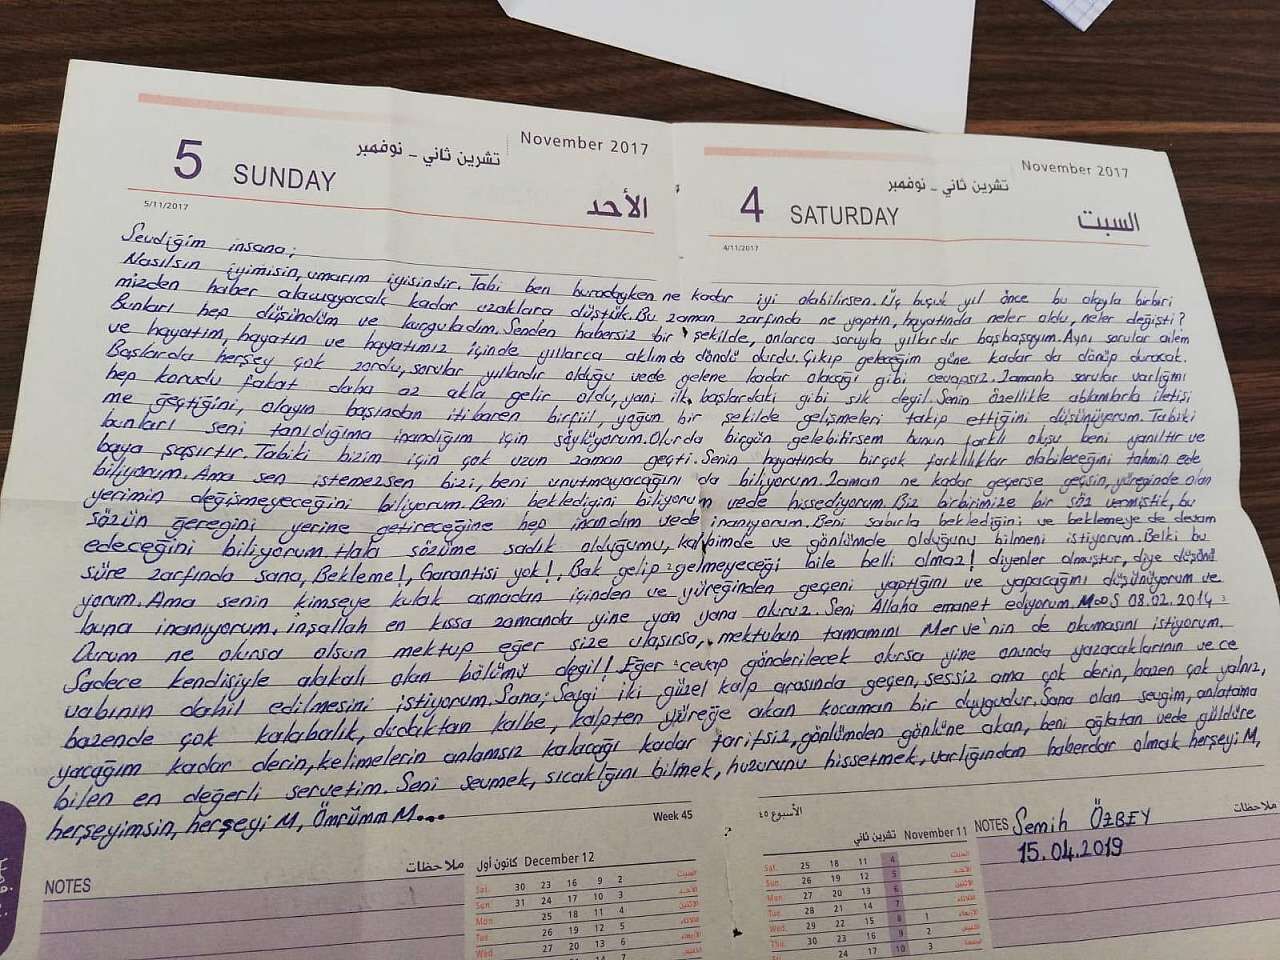 November 2017
تشرين ثاني - نوفمبر
5 SUNDAY الأحد
5/11/2017
November 2017
تشرين ثاني - نوفمبر
4 SATURDAY السبت
4/11/2017
Sevdiğim insana;
Nasılsın iyimisin, umarım iyisindir. Tabi ben buradayken ne kadar iyi olabilirsen. Üç buçuk yıl önce bu olayla birbiri
mizden haber alamayacak kadar uzaklara düştük. Bu zaman zarfında ne yaptın, hayatında neler oldu, neler değişti?
Bunları hep düşündüm ve kurguladım. Senden habersiz bir şekilde, onlarca soruyla yıllardır başbaşayım. Aynı sorular ailem
ve hayatım, hayatın ve hayatımız içinde yıllarca aklımda döndü durdu. Çıkıp geleceğim güne kadar da dönüp duracak.
Başlarda herşey çok zordu, sorular yıllardır olduğu vede gelene kadar olacağı gibi cevapsız. Zamanla sorular varlığını
hep korudu fakat daha az akla gelir oldu, yani ilk başlardaki gibi sık değil. Senin özellikle ablamlarla iletişi
me geçtiğini, olayın başından itibaren birçiil, yoğun bir şekilde gelişmeleri takip ettiğini düşünüyorum. Tabiki
bunları seni tanıdığıma inandığım için söylüyorum. Olurda birgün gelebilirsem bunun farklı oluşu beni yanıltır ve
baya şaşırtır. Tabiki bizim için çok uzun zaman geçti. Senin hayatında birçok farklılıklar olabileceğini tahmin ede
biliyorum. Ama sen istemezsen bizi, beni unutmayacağını da biliyorum. Zaman ne kadar geçerse geçsin, yüreğinde olan
yerimin değişmeyeceğini biliyorum. Beni beklediğini biliyorum vede hissediyorum. Biz birbirimize bir söz vermiştik, bu
sözün gereğini yerine getireceğine hep inandım vede inanıyorum. Beni sabırla beklediğini ve beklemeye de devam
edeceğini biliyorum. Hala sözüme sadık olduğumu, kalbimde ve gönlümde olduğunu bilmeni istiyorum. Belki bu
süre zarfında sana, Bekleme!, Garantisi yok!, Bak gelip gelmeyeceği bile belli olmaz! diyenler olmuştur, diye düşünü
yorum. Ama senin kimseye kulak asmadan içinden ve yüreğinden geçeni yaptığını ve yapacağını düşünüyorum ve
buna inanıyorum. inşallah en kıssa zamanda yine yan yana oluruz. Seni Allaha emanet ediyorum. M∞S 08.02.2014
Durum ne olursa olsun mektup eğer size ulaşırsa, mektubun tamamını Merve'nin de okumasını istiyorum.
Sadece kendisiyle alakalı olan bölümü değil! Eğer cevap gönderilecek olursa yine onunda yazacaklarının ve ce
vabının dahil edilmesini istiyorum. Sana; Sevgi iki güzel kalp arasında geçen, sessiz ama çok derin, bazen çok yalnız,
bazende çok kalabalık, dudaktan kalbe, kalpten yüreğe akan kocaman bir duygudur. Sana olan sevgim, anlatama
yacağım kadar derin, kelimelerin anlamsız kalacağı kadar tarifsiz, gönlümden gönlüne akan, beni ağlatan vede güldüre
bilen en değerli servetim. Seni sevmek, sıcaklığını bilmek, huzurunu hissetmek, varlığından haberdar olmak herşeyi M,
herşeyimsin, herşeyi M, Ömrümm M...
Semih ÖZBEY
15.04.2019
Week 45
الأسبوع ٤٥
NOTES ملاحظات
كانون أول December 12
Sat. 30 23 16 9 2 السبت
Sun. 31 24 17 10 3 الأحد
Mon. 25 18 11 4 الاثنين
Tue. 26 19 12 5
Wed. 27 20 13 6
تشرين ثاني November 11
Sat. 25 18 11 4 السبت
Sun. 26 19 12 5 الأحد
Mon. 27 20 13 6 الاثنين
Tue. 28 21 14 7
Wed. 29 22 15 8 1
Thu. 30 23 16 9 2
24 17 10 3
NOTES ملاحظات